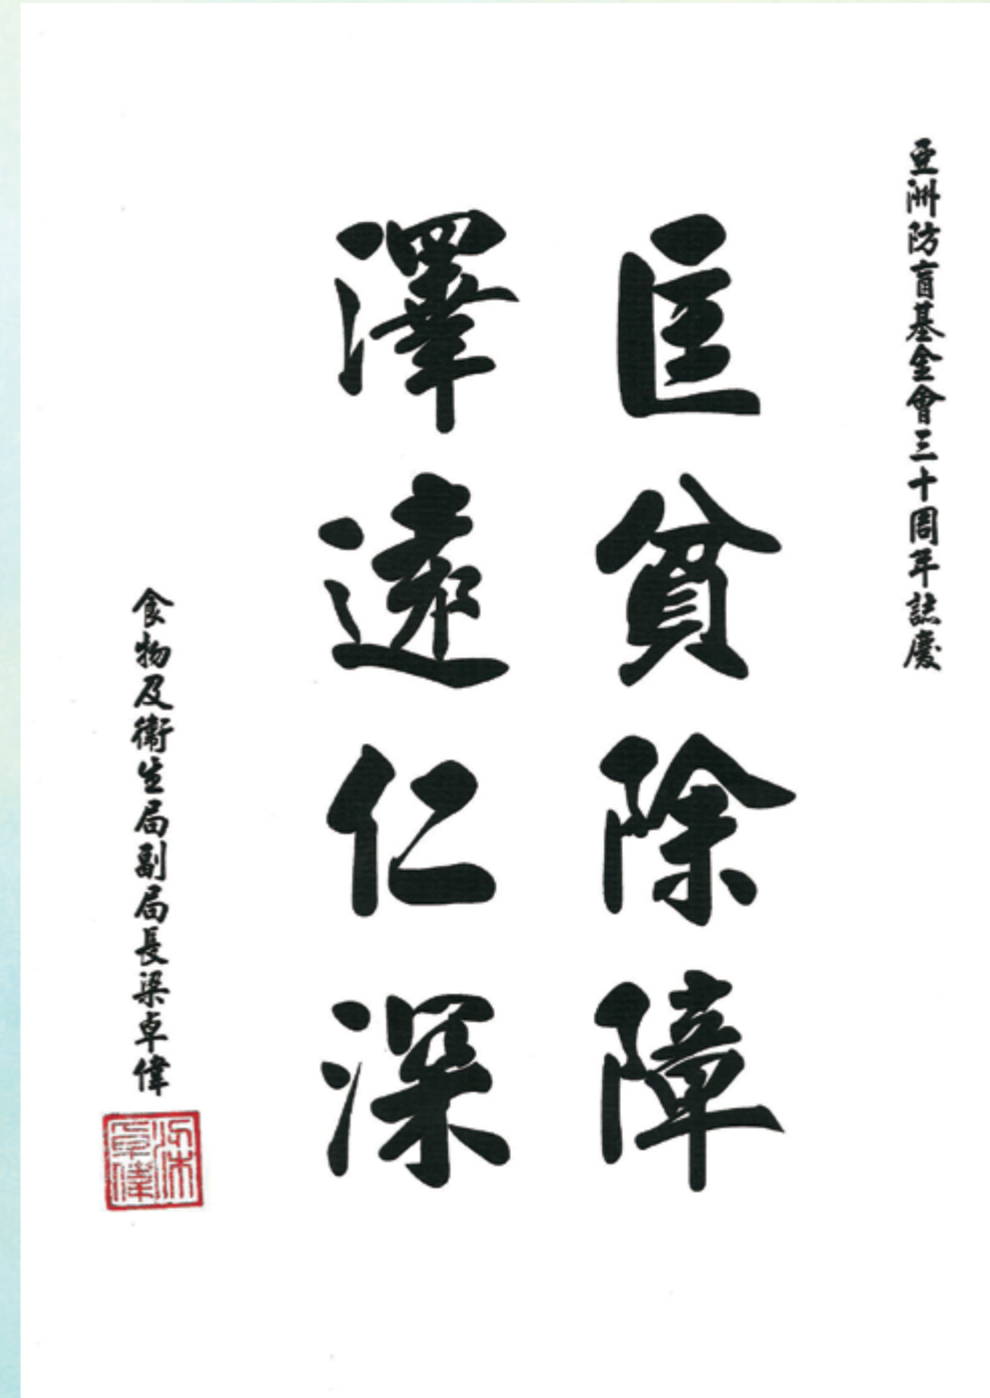 亞洲防盲基金會三十周年誌慶
匡貧除障
澤遠仁深
食物及衞生局副局長梁卓偉
梁卓偉